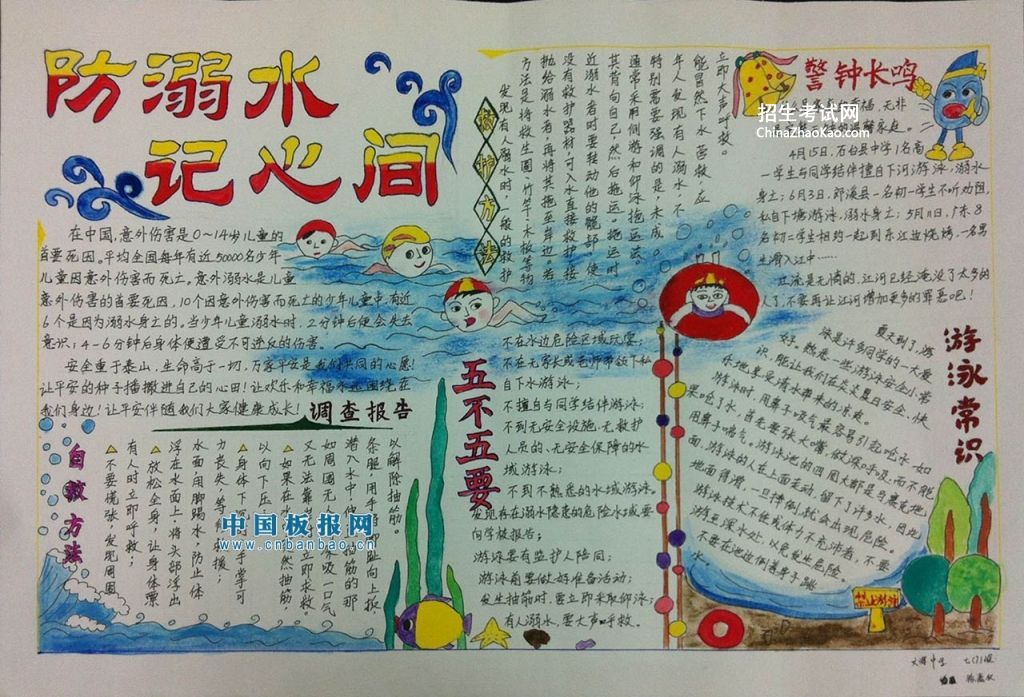 防溺水
记心间
在中国，意外伤害是0～14岁儿童的
首要死因，平均全国每年有近50000名少年
儿童因意外伤害而死亡。意外溺水是儿童
意外伤害的首要死因，10个因意外伤害而死亡的少年儿童中，有近
6个是因为溺水身亡的。当少年儿童溺水时，2分钟后便会失去
意识；4-6分钟后身体便遭受不可逆反的伤害。
安全重于泰山，生命高于一切，万家平安是我们共同的心愿！
让平安的种子播撒进自己的心田！让欢乐和幸福永远围绕在
我们身边！让平安伴随我们大家健康成长！
调查报告
救护方法
发现有人溺水时，一般的救护
方法是将救生圈、竹竿、木板等物
抛给溺水者，再将其拖至岸边。若
没有救护器材，可入水直接救护。接
近溺水者时要转动他的髋部，使
其背向自己，然后拖运。拖运时
通常采用侧游和仰泳拖运法。
特别需要强调的是：未成
年人发现有人溺水，不
能冒然下水营救，应
立即大声呼救。
警钟长鸣
招生考试网
ChinaZhaoKao.com
4月15日，石台县中学1名高
一学生与同学结伴擅自下河游泳，溺水
身亡；6月3日，郎溪县一名初一学生不听劝阻，
私自下塘游泳，溺水身亡；5月11日，广东8
名初二学生相约一起到东江边烧烤，一名男
生滑入江中……
江流是无情的，江河已经淹没了太多的
人了，不要再让江河增加更多的罪恶吧！
游泳常识
夏天到了，游
泳是许多同学的一大爱
好。熟悉一些游泳安全小常
识，能让我们在炎炎夏日安全、快
乐地享受清水带来的凉爽。
游泳时，用鼻子吸气很容易引起呛水。如
果呛了水，首先要张大嘴，做深呼吸；而不能
用鼻子喘气。游泳池的四周大都是马赛克地
面，游泳的人在上面走动，留下了许多水，因此
地面很滑，一旦摔倒，就会出现危险。
游泳技术不佳或体力不充沛者，不要
游至深水处，以免发生危险。
不要在池边倒着身子跳
水。
五不五要
不在水边危险区域玩耍；
不在无家长或老师带领下私
自下水游泳；
不擅自与同学结伴游泳；
不到无安全设施、无救护
人员的、无安全保障的水
域游泳；
不到不熟悉的水域游泳。
发现存在溺水隐患的危险水域要
向学校报告；
游泳要有监护人陪同；
游泳前要做好准备活动；
发生抽筋时，要立即采取仰泳；
有人溺水，要大声呼救。
自救方法
不要慌张，发现周围
有人时立即呼救；
放松全身，让身体漂
浮在水面上，将头部浮出
水面，用脚踢水，防止体
力丧失，等
身体下
以向下压
如果在水
又无法靠岸
立即求救
如周围无
吸一口气
潜入水中，伸
抽筋的那
条腿，用手将
脚趾向上扳，
以解除抽筋。
中国板报网
www.cnbanbao.cn
禁止游泳